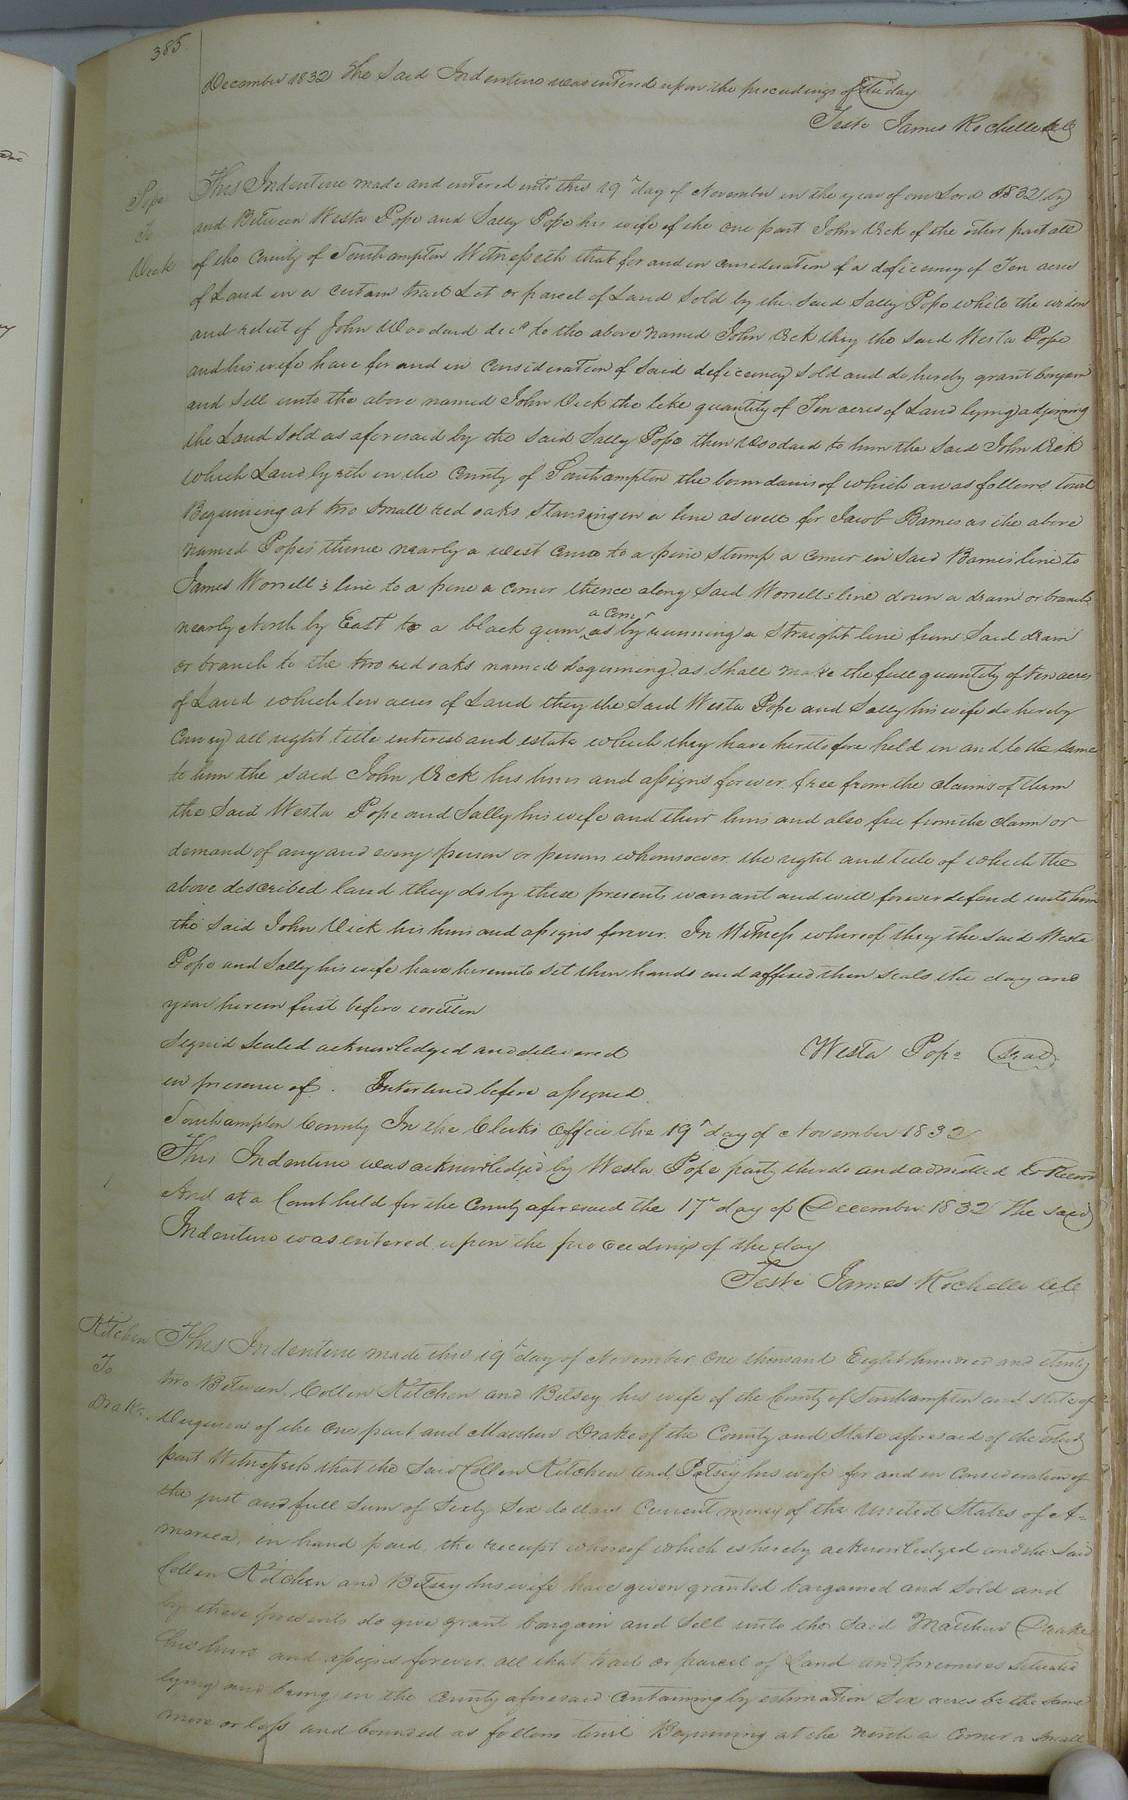 385
December 1832 The Said Indenture was entered upon the proceedings of the day
Teste James Rochelle Clk
Pope
To
Vick
This Indenture made and entered into this 19th day of November in the year of our Lord 1832 by
and Between Westa Pope and Sally Pope his wife of the one part John Vick of the other part all
of the County of Southampton Witnesseth that for and in consideration of a deficiency of Ten acres
of Land in a certain tract Lot or parcel of Land Sold by the said Sally Pope while the widow
and relict of John Woodard decd to the above named John Vick they the said Westa Pope
and his wife have for and in consideration of said deficiency sold and do hereby grant bargain
and sell unto the above named John Vick the like quantity of Ten acres of Land lying adjoining
the Land sold as aforesaid by the said Sally Pope then Woodard to him the said John Vick
which Land lyeth in the County of Southampton the boundaries of which are as follows towit
Beginning at two small red oaks standing in a line as well for Jacob Barnes as the above
named Popes thence nearly a west course to a pine stump a corner in said Barnes line to
James Worrell's line to a pine a corner thence along said Worrells line down a drain or branch
nearly North by East to a black gum a corner as by running a straight line from said drain
or branch to the two red oaks named beginning as shall make the full quantity of ten acres
of Land which ten acres of Land they the said Westa Pope and Sally his wife do hereby
convey all right title interest and estate which they have heretofore held in and to the same
to him the said John Vick his heirs and assigns forever free from the claims of them
the said Westa Pope and Sally his wife and their heirs and also free from the claim or
demand of any and every person or persons whomsoever the right and title of which the
above described land they do by these presents warrant and will forever defend unto him
the said John Vick his heirs and assigns forever. In Witness whereof they the said Westa
Pope and Sally his wife have hereunto set their hands and affixed their seals the day and
year herein first before written
Signed Sealed acknowledged and delivered Westa Pope Seal
in presence of. Interlined before assigned.
Southampton County In the Clerks Office the 19th day of November 1832
This Indenture was acknowledged by Westa Pope party thereto and admitted to Record
And at a Court held for the County aforesaid the 17th day of December 1832 The said
Indenture was entered upon the proceedings of the day
Teste James Rochelle Clk
Kitchen
To
Drake
This Indenture made this 19th day of November One thousand Eight hundred and thirty
two Between Collen Kitchen and Betsey his wife of the County of Southampton and state of
Virginia of the One part and Matthew Drake of the County and State aforesaid of the other
part Witnesseth that the said Collen Kitchen and Betsey his wife for and in consideration of
the just and full sum of Sixty Six dollars Current money of the United States of A-
merica in hand paid the receipt whereof which is hereby acknowledged and the said
Collen Kitchen and Betsey his wife have given granted bargained and sold and
by these presents do give grant bargain and sell unto the said Matthew Drake
his heirs and assigns forever all that tract or parcel of Land and premises situated
lying and being in the County aforesaid Containing by estimation Six acres be the same
more or less and bounded as follows towit Beginning at the north a corner a small